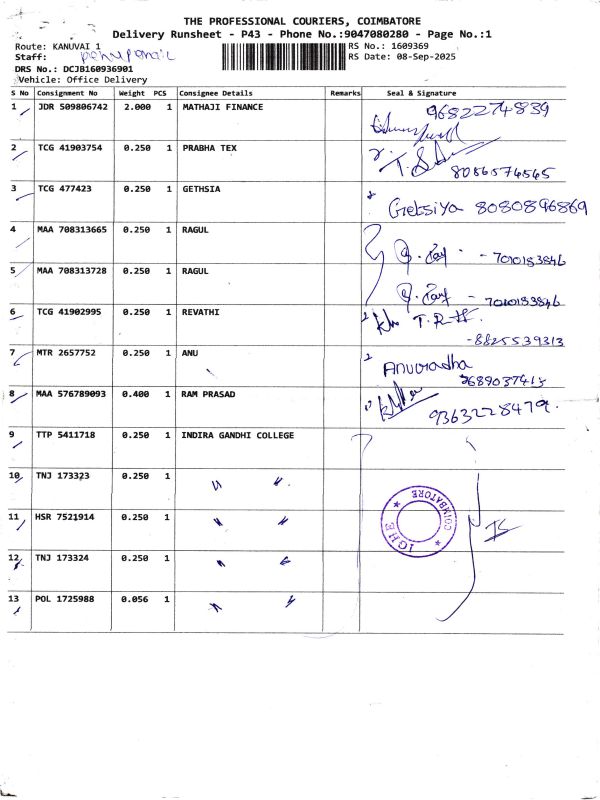 THE PROFESSIONAL COURIERS, COIMBATORE
Delivery Runsheet - P43 - Phone No.:9047080280 - Page No.:1
Route: KANUVAI 1 RS No.: 1609369
Staff: RS Date: 08-Sep-2025
DRS No.: DCJB160936901
Vehicle: Office Delivery
S No Consignment No Weight PCS Consignee Details Remarks Seal & Signature
1 JDR 509806742 2.000 1 MATHAJI FINANCE 9682274839
2 TCG 41903754 0.250 1 PRABHA TEX 8086574565
3 TCG 477423 0.250 1 GETHSIA Getsiya 8080896869
4 MAA 708313665 0.250 1 RAGUL - 7010183846
5 MAA 708313728 0.250 1 RAGUL - 7010183846
6 TCG 41902995 0.250 1 REVATHI
-8825539313
7 MTR 2657752 0.250 1 ANU Anuradha
9689037413
8 MAA 576789093 0.400 1 RAM PRASAD 9363228479.
9 TTP 5411718 0.250 1 INDIRA GANDHI COLLEGE
10 TNJ 173323 0.250 1 " "
11 HSR 7521914 0.250 1 " "
12 TNJ 173324 0.250 1 " "
13 POL 1725988 0.056 1 " "
COIMBATORE